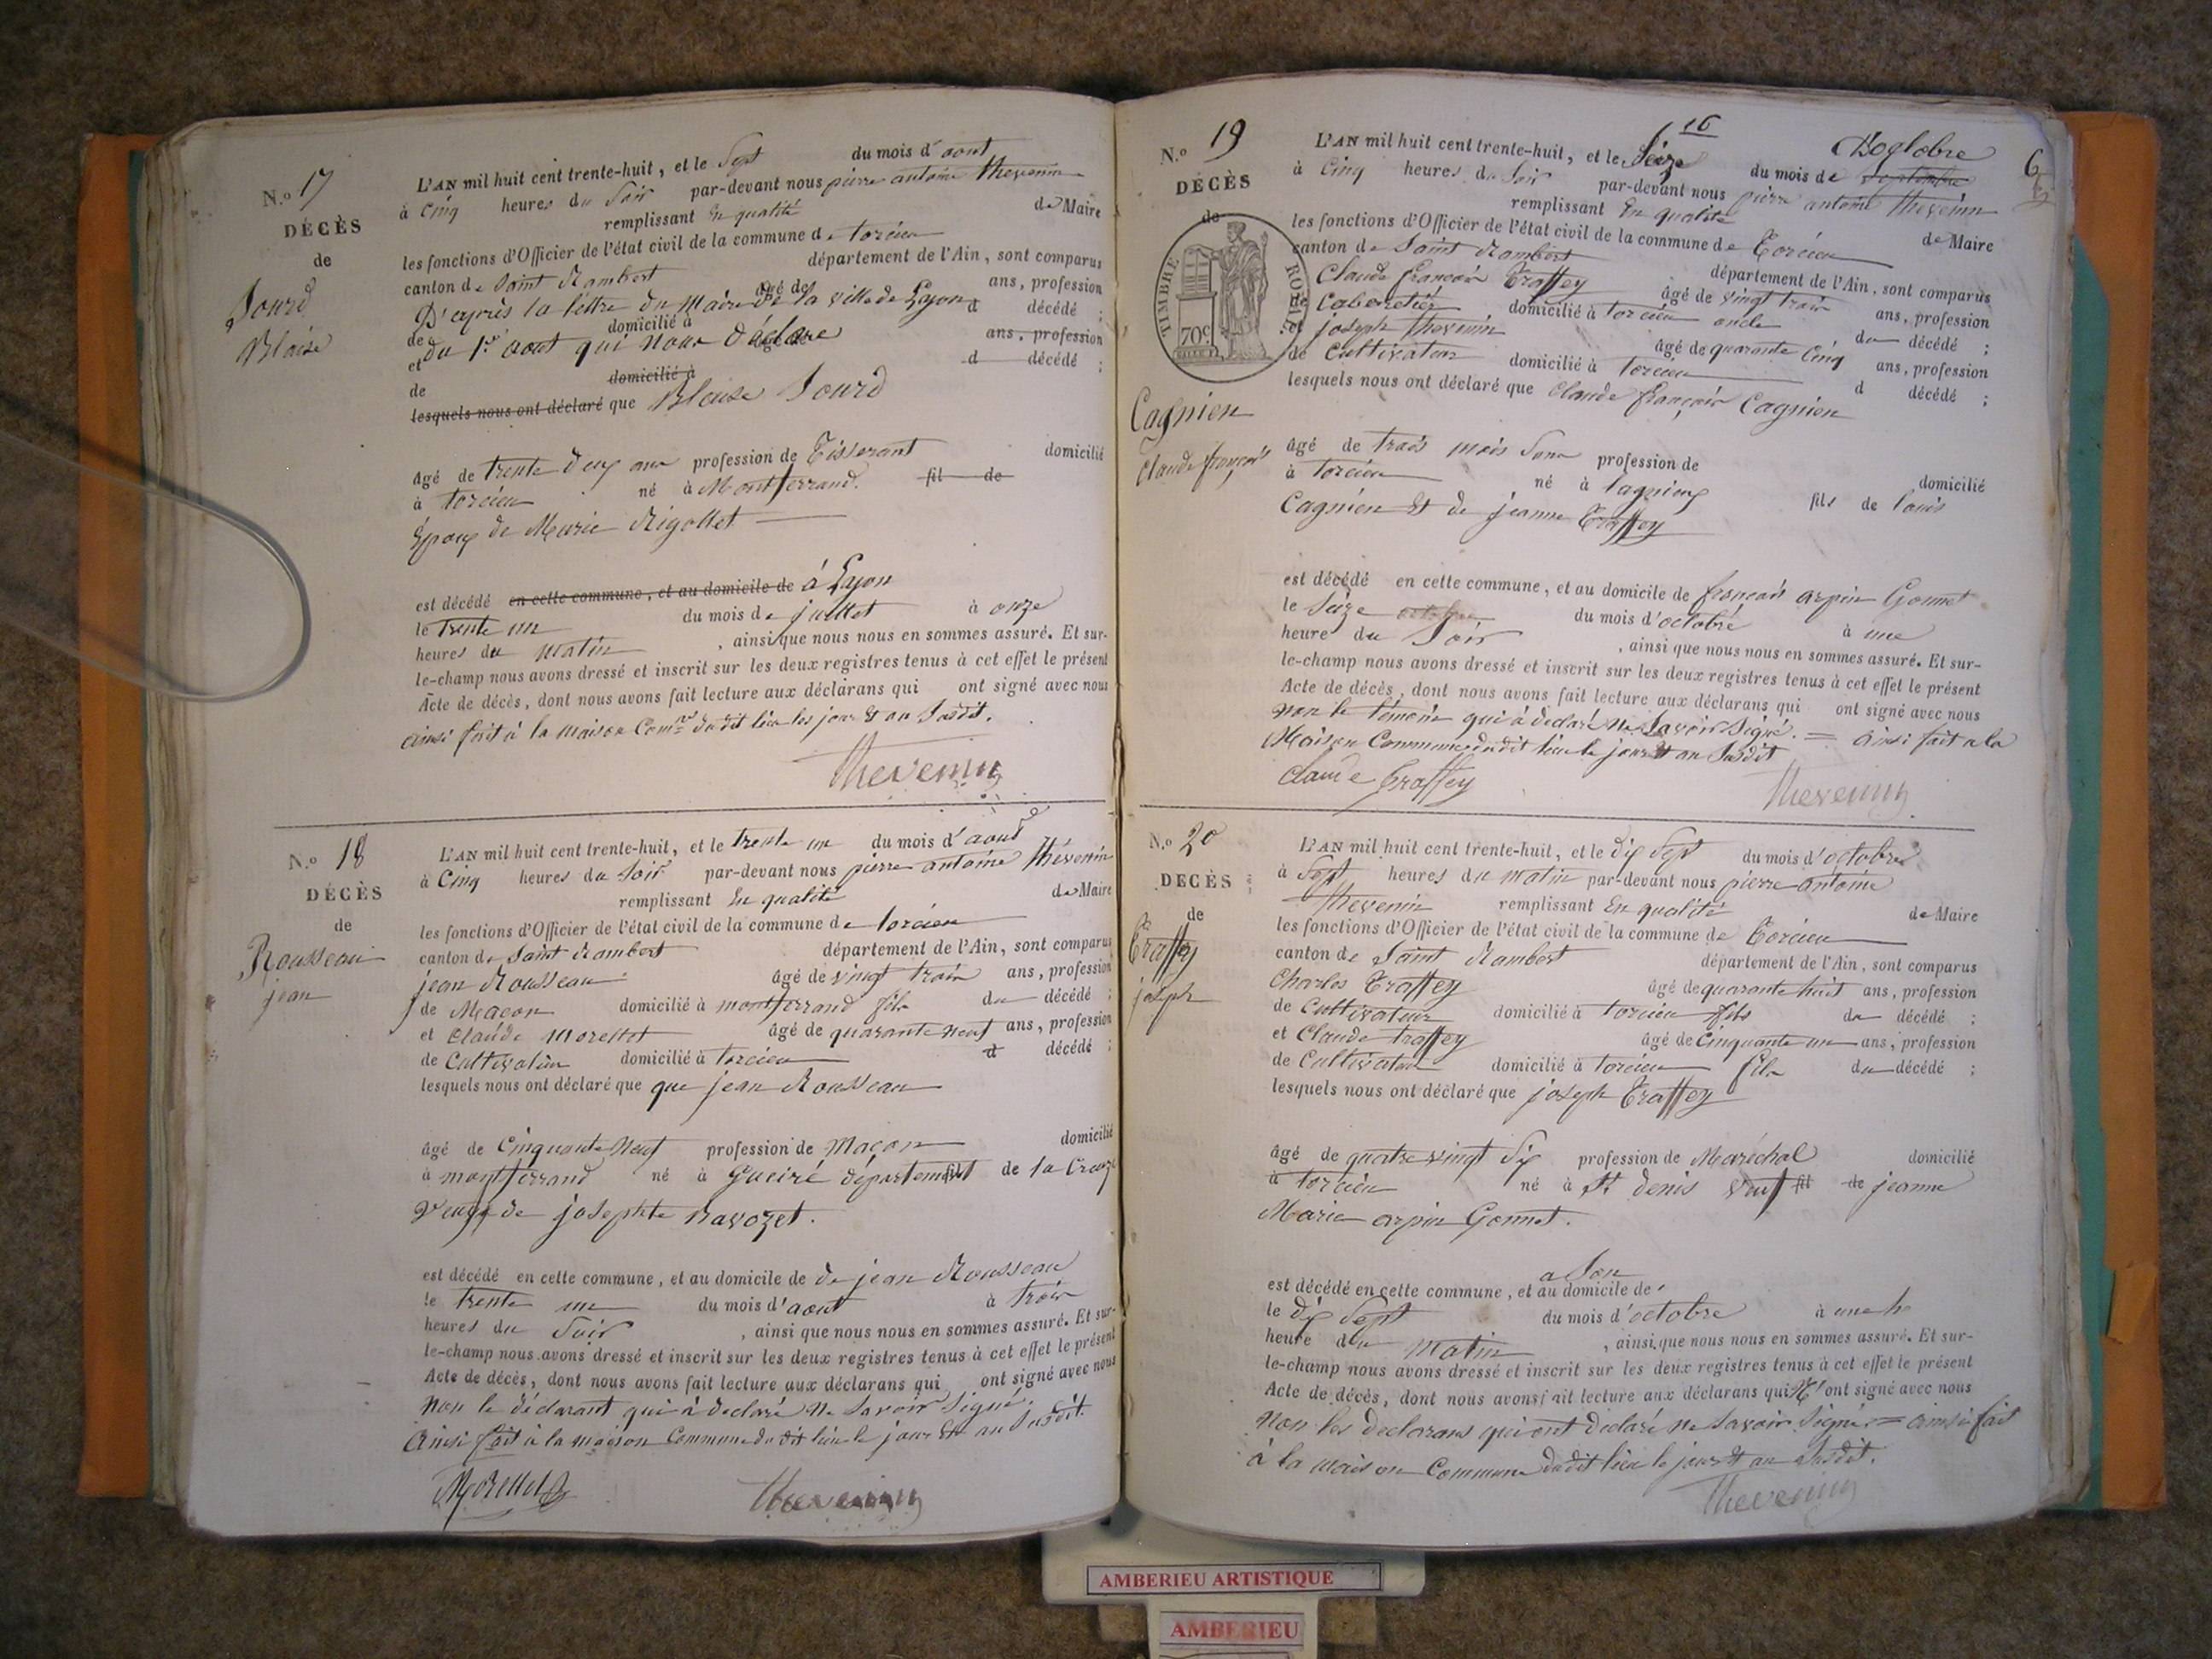 N.º 17
DÉCÈS
de
Jourd
Blaise
L'AN mil huit cent trente-huit, et le Sept du mois d'aout
à Cinq heures du Soir par-devant nous pierre antoine thevenin
remplissant En qualité de Maire
les fonctions d'Officier de l'état civil de la commune de torcieu
canton de Saint Rambert département de l'Ain, sont comparus
D'après la lettre du Maire de la ville de Lyon âgé de ans, profession
de domicilié à d décédé ;
et du 1er aout qui nous déclare âgé de ans, profession
de domicilié à d décédé ;
lesquels nous ont déclaré que Blaise Jourd
âgé de trente deux ans profession de Tisserant domicilié
à torcieu né à Montferrand. fil de
Epoux de Marie Rigollet
est décédé en cette commune, et au domicile de à Lyon
le trente un du mois de juillet à onze
heures du matin, ainsi que nous nous en sommes assuré. Et sur-
le-champ nous avons dressé et inscrit sur les deux registres tenus à cet effet le présent
Acte de décès, dont nous avons fait lecture aux déclarans qui ont signé avec nous
ainsi fait à la maison Comne dudit lieu les jour & an Susdit.
Thevenin
N.º 18
DÉCÈS
de
Rousseau
jean
L'AN mil huit cent trente-huit, et le trente un du mois d'aout
à Cinq heures du Soir par-devant nous pierre antoine thévenin
remplissant En qualité de Maire
les fonctions d'Officier de l'état civil de la commune de torcieu
canton de Saint Rambert département de l'Ain, sont comparus
jean Rousseau âgé de vingt trois ans, profession
de Maçon domicilié à montferrand fils du décédé ;
et Claude Morellet âgé de quarante neuf ans, profession
de Cultivateur domicilié à torcieu d décédé ;
lesquels nous ont déclaré que que jean Rousseau
âgé de Cinquante Neuf profession de Maçon domicilié
à montferrand né à Gueiré département fil de la Creuze
Veuf de josephte navozet.
est décédé en cette commune, et au domicile de de jean Rousseau
le trente un du mois d'aout à trois
heures du Soir, ainsi que nous nous en sommes assuré. Et sur-
le-champ nous avons dressé et inscrit sur les deux registres tenus à cet effet le présent
Acte de décès, dont nous avons fait lecture aux déclarans qui ont signé avec nous
Non le déclarant qui à declaré ne Savoir Signé.
Ainsi fait à la maison Commune du dit lieu le jour & an Susdit.
Morellet
Thevenin
6
N.º 19
DÉCÈS
de
TIMBRE ROYAL
70c.
Cagnien
Claude françois
16
L'AN mil huit cent trente-huit, et le Seize du mois de septembre D'octobre
à Cinq heures du Soir par-devant nous pierre antoine thevenin
remplissant En qualité de Maire
les fonctions d'Officier de l'état civil de la commune de Torcieu
canton de Saint Rambert département de l'Ain, sont comparus
Claude françois Traffey âgé de vingt trois ans, profession
de Cabaretier domicilié à torcieu oncle du décédé ;
et joseph thevenin âgé de quarante Cinq ans, profession
de Cultivateur domicilié à torcieu d décédé ;
lesquels nous ont déclaré que Claude françois Cagnien
âgé de trois mois Sans profession de domicilié
à torcieu né à lagnieux fils de louis
Cagnien & de jeanne Traffey
est décédé en cette commune, et au domicile de francois arpin Gonnet
le Seize octobre du mois d'octobre à une
heure du Soir, ainsi que nous nous en sommes assuré. Et sur-
le-champ nous avons dressé et inscrit sur les deux registres tenus à cet effet le présent
Acte de décès, dont nous avons fait lecture aux déclarans qui ont signé avec nous
non le témoin qui à declaré ne Savoir Signé. = ainsi fait a la
Maison Commune dudit lieu le jour & an Susdit
Claude Traffey
Thevenin
N.º 20
DÉCÈS
de
Traffey
joseph
L'AN mil huit cent trente-huit, et le dix Sept du mois d'octobre
à Sept heures du matin par-devant nous pierre antoine
thevenin remplissant En qualité de Maire
les fonctions d'Officier de l'état civil de la commune de Torcieu
canton de Saint Rambert département de l'Ain, sont comparus
Charles Traffey âgé de quarante huit ans, profession
de Cultivateur domicilié à torcieu fils du décédé ;
et Claude traffey âgé de Cinquante un ans, profession
de Cultivateur domicilié à torcieu fils du décédé ;
lesquels nous ont déclaré que joseph Traffey
âgé de quatre vingt dix profession de Maréchal domicilié
à torcieu né à St denis veuf fil de jeanne
Marie arpin Gonnet.
est décédé en cette commune, et au domicile de a Son
le dix Sept du mois d'octobre à une h
heure du matin, ainsi que nous nous en sommes assuré. Et sur-
le-champ nous avons dressé et inscrit sur les deux registres tenus à cet effet le présent
Acte de décès, dont nous avons fait lecture aux déclarans qui N' ont signé avec nous
Non les declarans qui ont declaré ne Savoir Signé = ainsi fait
à la maison Commune dudit lieu le jour & an Susdit.
Thevenin
AMBERIEU ARTISTIQUE
AMBERIEU